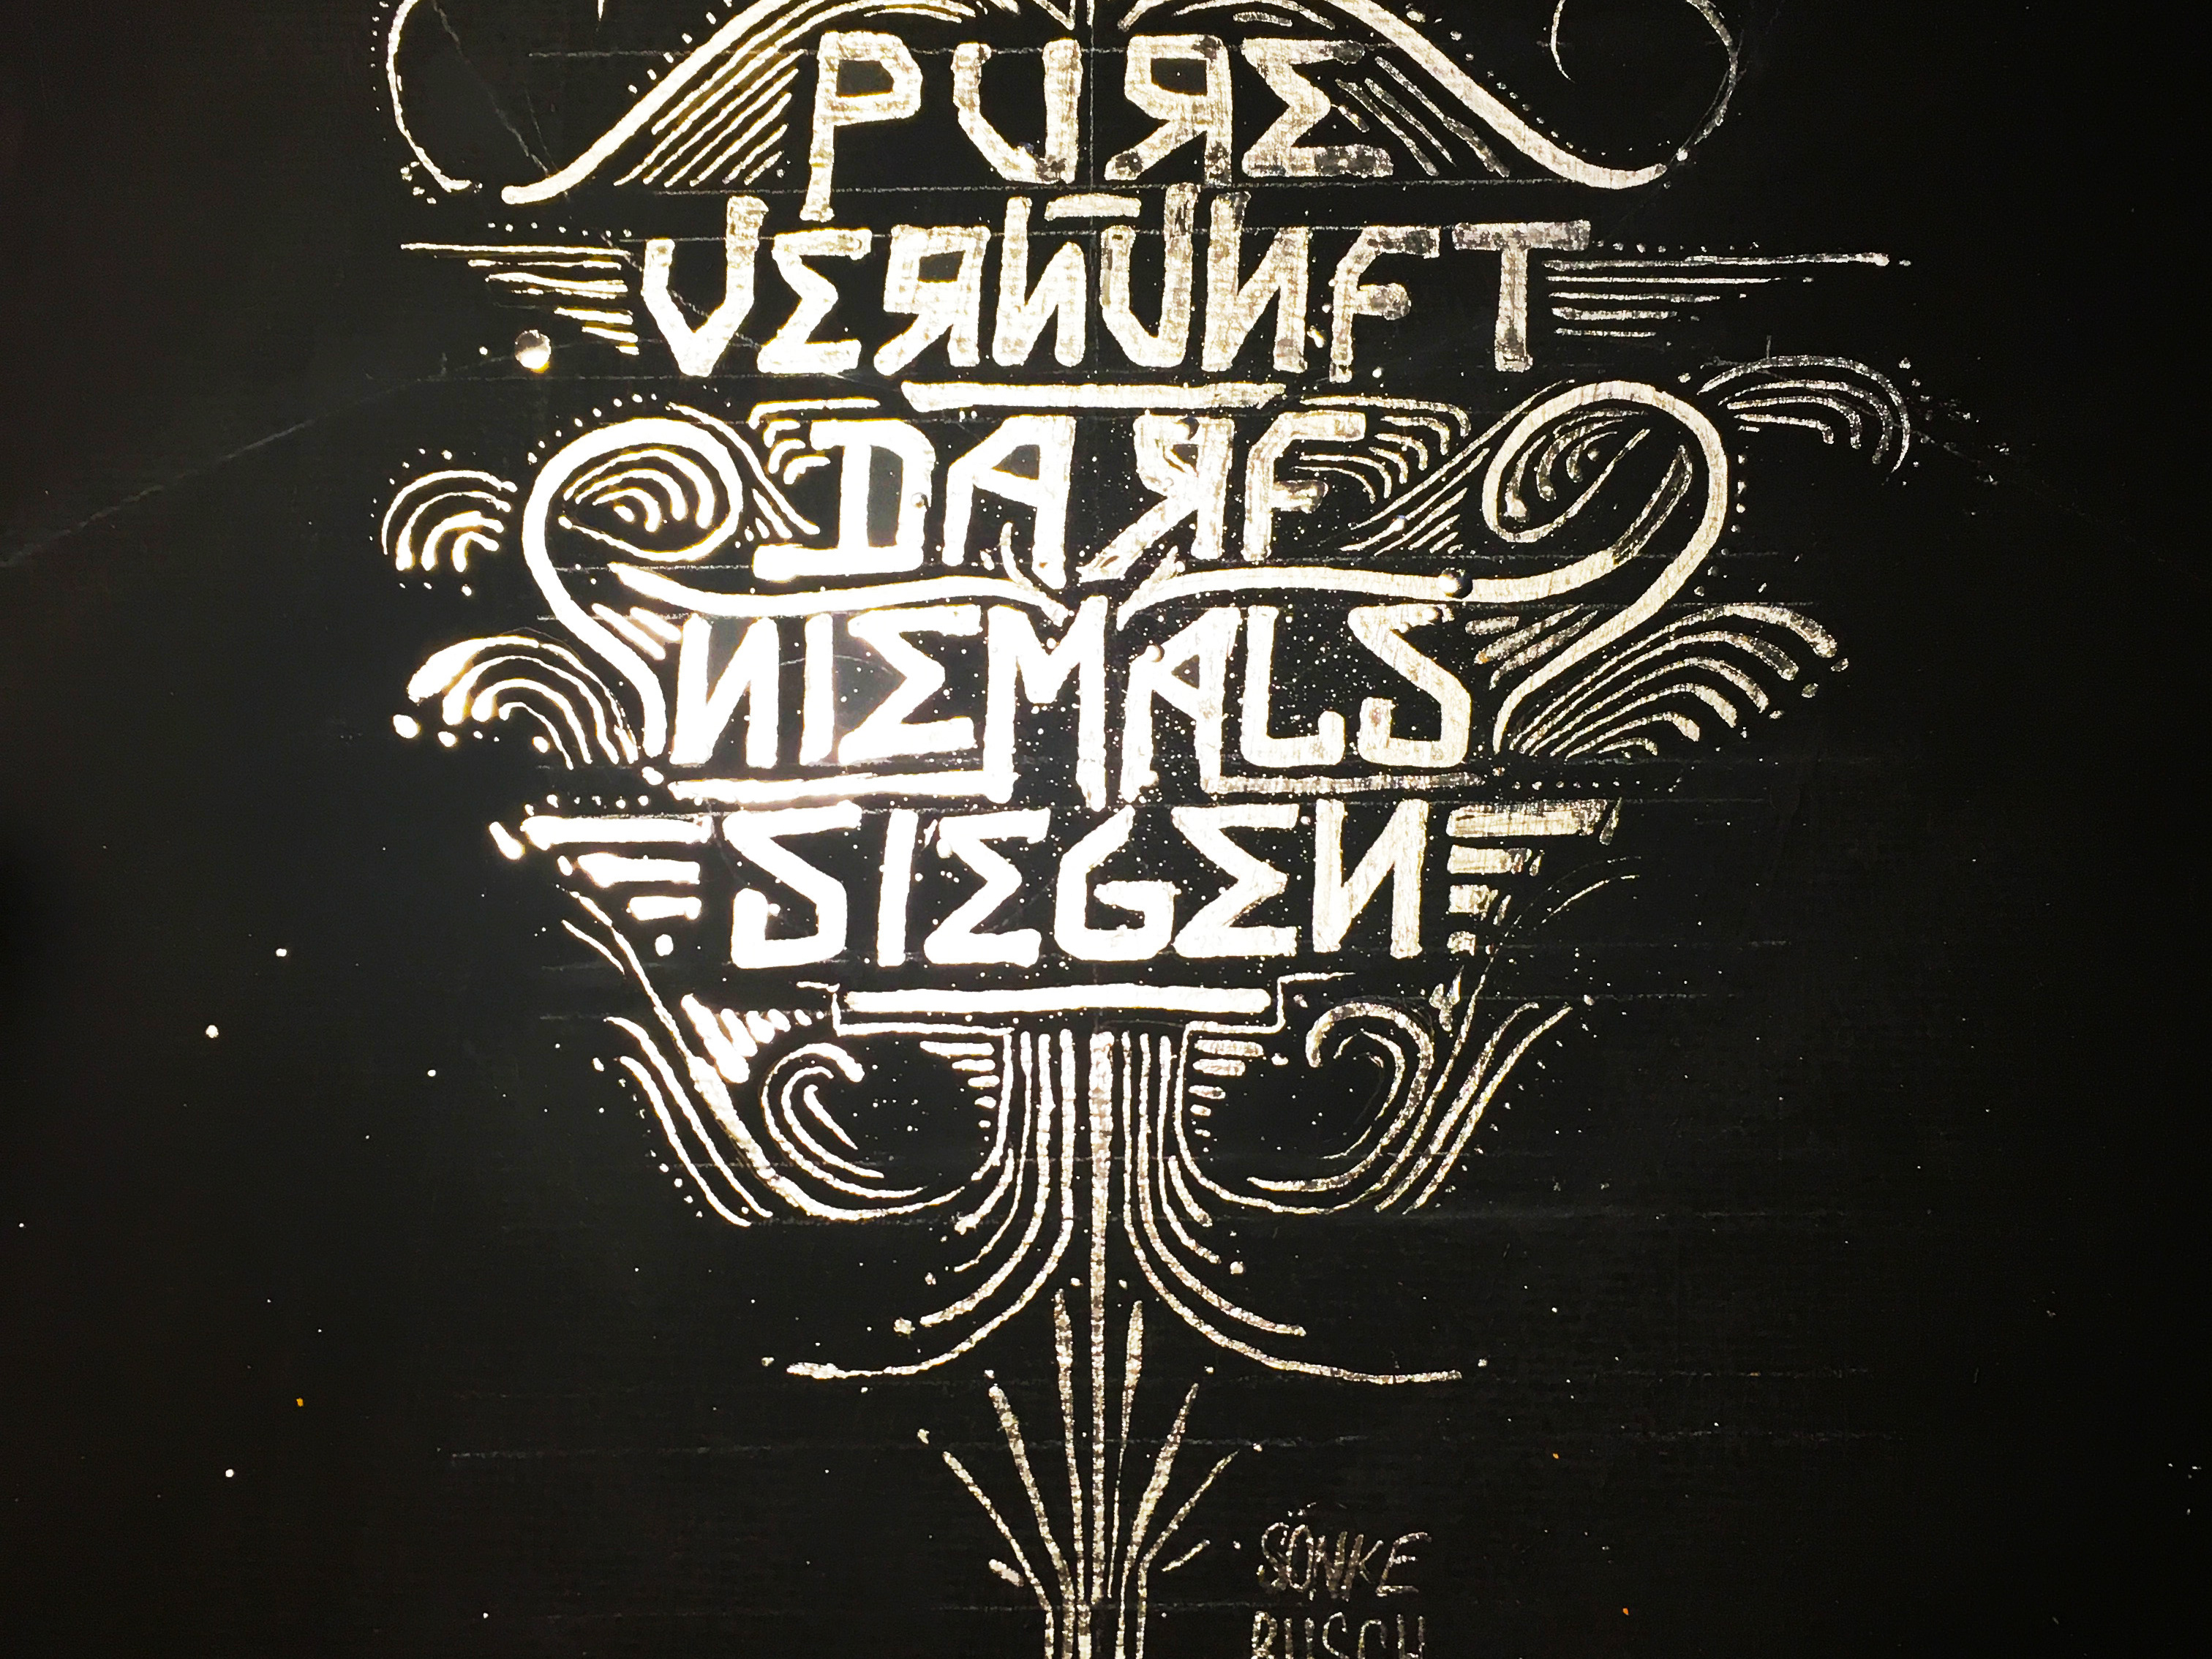 PURE
VERNUNFT
DARF
NIEMALS
SIEGEN
SÖNKE
BUSCH